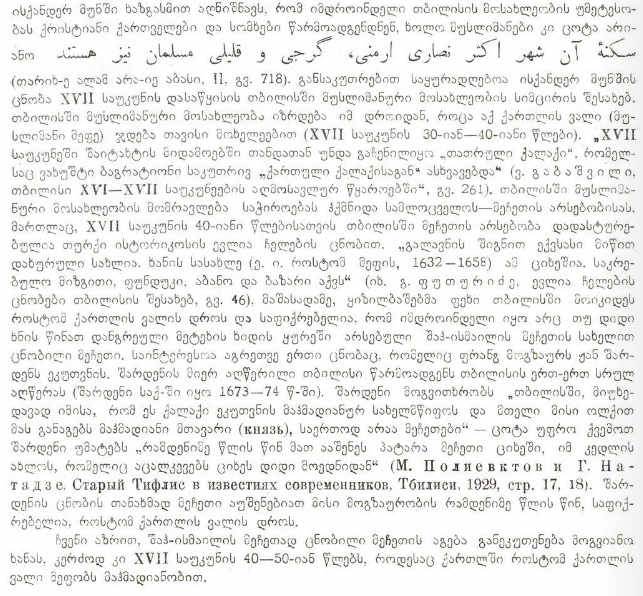 ისკანდერ მუნში ხაზგასმით აღნიშნავს, რომ იმდროინდელი თბილისის მოსახლეობის უმეტესო-
ბას ქრისტიანი ქართველები და სომხები წარმოადგენდნენ, ხოლო მუსლიმანები კი ცოტა არი-
ანო سكنهٔ آن شهر اكثر نصارى ارمنى، گرجى و قليلى مسلمان نيز هستند
(თარიხ-ე ალამ არა-იე აბასი, II, გვ. 718). განსაკუთრებით საყურადღებოა ისკანდერ მუნშის
ცნობა XVII საუკუნის დასაწყისის თბილისში მუსლიმანური მოსახლეობის სიმცირის შესახებ.
თბილისში მუსლიმანური მოსახლეობა იზრდება იმ დროიდან, როცა აქ ქართლის ვალი (მუ-
სლიმანი მეფე) ჯდება თავისი მოხელეებით (XVII საუკუნის 30-იან—40-იანი წლები). „XVII
საუკუნეში შაიტახტის მიდამოებში თანდათან უნდა გაჩენილიყო „თათრული ქალაქი“, რომელ-
საც ვახუშტი ბაგრატიონი საკუთრივ „ქართული ქალაქისაგან“ ასხვავებდა“ (ვ. გაბაშვილი,
თბილისი XVI—XVII საუკუნეების აღმოსავლურ წყაროებში“, გვ. 261). თბილისში მუსლიმა-
ნური მოსახლეობის მომრავლება საჭიროებას ჰქმნიდა სამლოცველოს—მეჩეთის არსებობისას.
მართლაც, XVII საუკუნის 40-იანი წლებისათვის თბილისში მეჩეთის არსებობა დადასტურე-
ბულია თურქი ისტორიკოსის ევლია ჩელების ცნობით. „გალავნის შიგნით ექვსასი მიწით
დახურული სახლია. ხანის სასახლე (ე. ი. როსტომ მეფის, 1632—1658) ამ ციხეშია. საკრე-
ბულო მიზგითი, ფუნდუკი, აბანო და ბაზარი აქვს“ (იხ. გ. ფუთურიძე, ევლია ჩელების
ცნობები თბილისის შესახებ, გვ. 46), მაშასადამე, ყიზილბაშებმა ფეხი თბილისში მოიკიდეს
როსტომ ქართლის ვალის დროს და საფიქრებელია, რომ იმდროინდელი იყო არც თუ დიდი
ხნის წინათ დანგრეული მეტეხის ხიდის ყურეში არსებული შაჰ-ისმაილის მეჩეთის სახელით
ცნობილი მეჩეთი. საინტერესოა აგრეთვე ერთი ცნობაც, რომელიც ფრანგ მოგზაურს ჟან შარ-
დენს ეკუთვნის. შარდენის მიერ აღწერილი თბილისი წარმოადგენს თბილისის ერთ-ერთ სრულ
აღწერას (შარდენი საქ-ში იყო 1673—74 წ-ში). შარდენი მოგვითხრობს „თბილისში, მიუხე-
დავად იმისა, რომ ეს ქალაქი ეკუთვნის მაჰმადიანურ სახელმწიფოს და მთელი მისი ოლქით
მას განაგებს მაჰმადიანი მთავარი (князь), საერთოდ არაა მეჩეთები“ — ცოტა უფრო ქვემოთ
შარდენი უმატებს „რამდენიმე წლის წინ მათ ააშენეს პატარა მეჩეთი ციხეში, იმ კედლის
ახლოს, რომელიც აცალკევებს ციხეს დიდი მოედნიდან“ (М. Полиевктов и Г. На-
тадзе. Старый Тифлис в известиях современников, Тбилиси, 1929, стр. 17, 18). შარ-
დენის ცნობის თანახმად მეჩეთი აუშენებიათ მისი მოგზაურობის რამდენიმე წლის წინ, საფიქ-
რებელია, როსტომ ქართლის ვალის დროს.
ჩვენი აზრით, შაჰ-ისმაილის მეჩეთად ცნობილი მეჩეთის აგება განეკუთვნება მოგვიანო
ხანას, კერძოდ კი XVII საუკუნის 40—50-იან წლებს, როდესაც ქართლში როსტომ ქართლის
ვალი მეფობს მაჰმადიანობით.